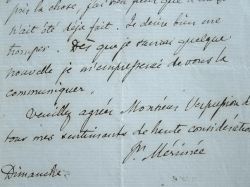 près la chose, j'ai bien peur que
n'ait été déjà fait. Je désire bien me
tromper. Dès que je saurai quelque
nouvelle je m'empresserai de vous la
communiquer.
Veuillez agréer Monsieur l'expression de
tous mes sentiments de haute considération
Pr. Mérimée
Dimanche